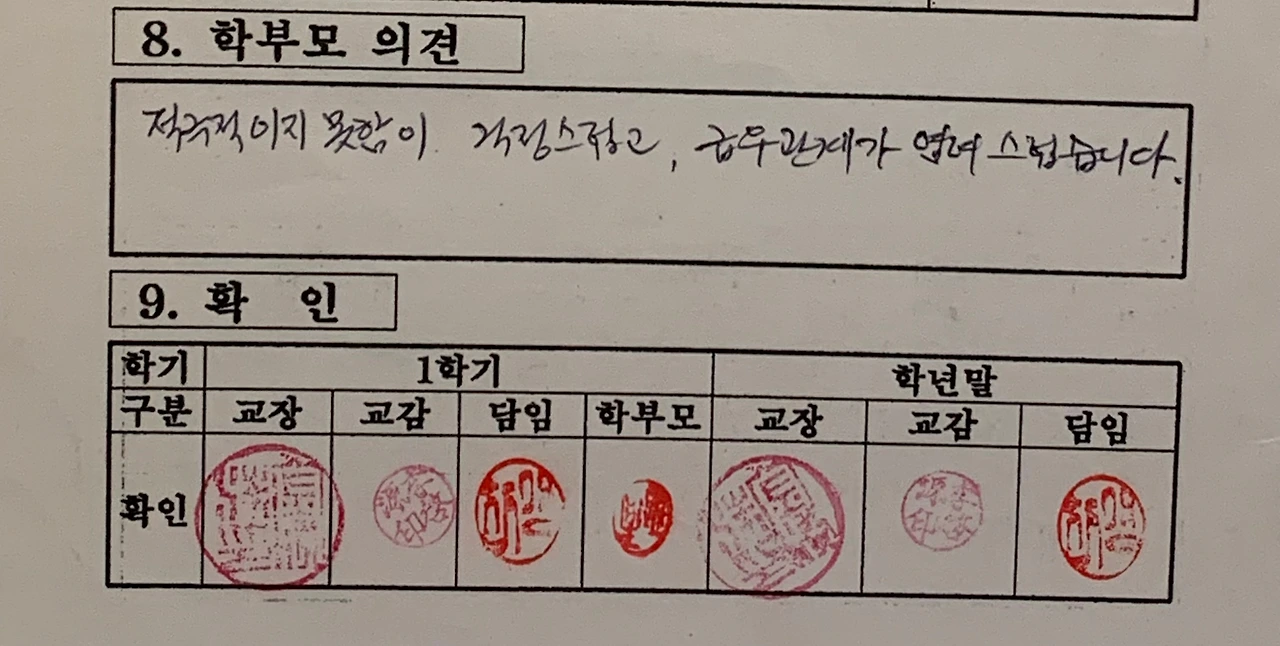 8. 학부모 의견
적극적이지 못함이 걱정스럽고, 급우관계가 염려스럽습니다.
9. 확 인
학기 1학기 학년말
구분 교장 교감 담임 학부모 교장 교감 담임
확인